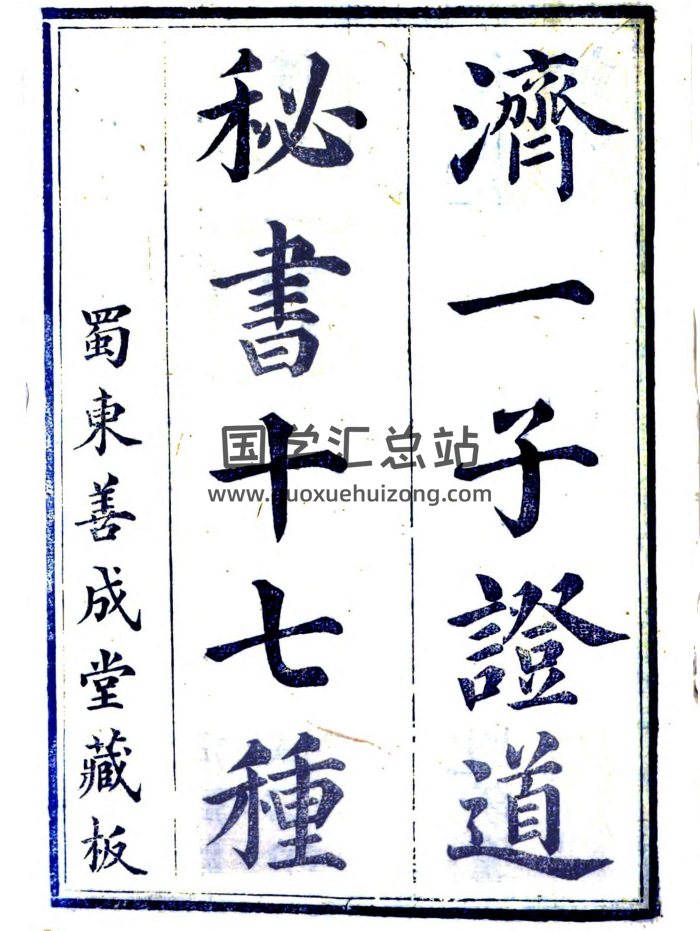 濟一子證道
秘書十七種
蜀東善成堂藏板
国学汇总站
www.guoxuehuizong.com